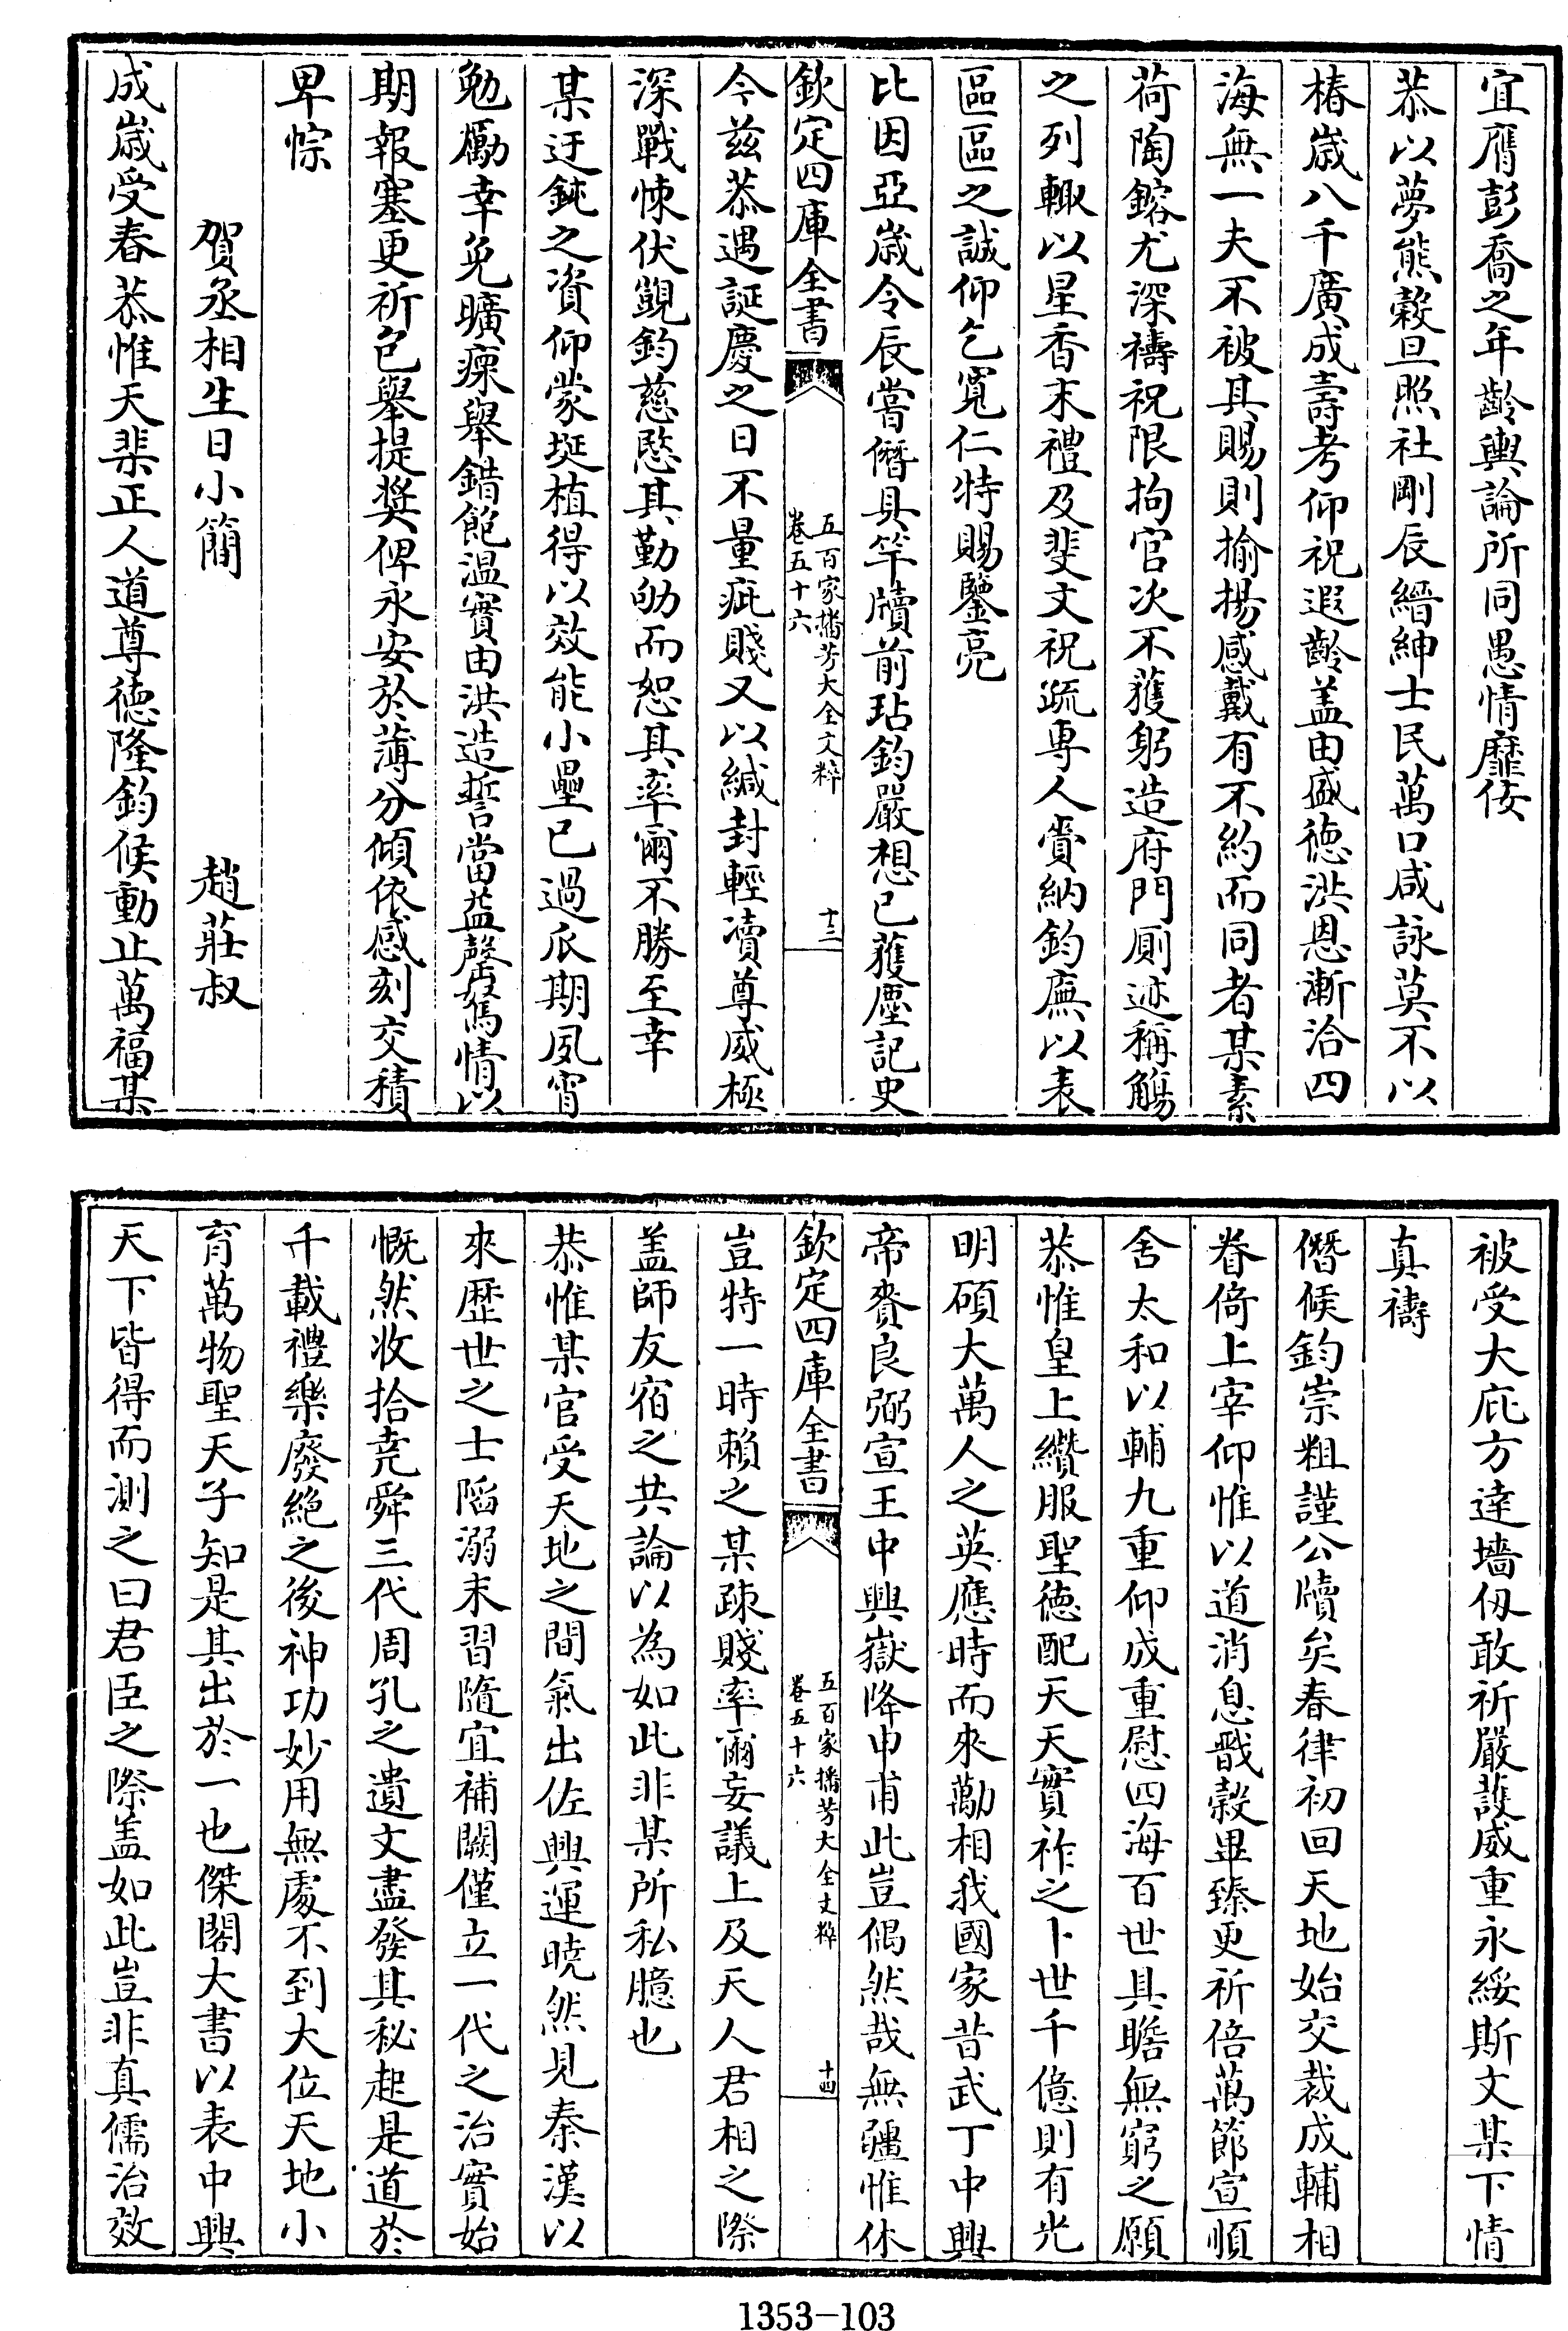 宜膺彭喬之年齡輿論所同愚情靡佞
恭以夢熊縠旦照社剛辰縉紳士民萬口咸詠莫不以
椿歳八千廣成壽考仰祝遐齡盖由盛徳洪恩漸洽四
海無一夫不被其賜則揄揚感戴有不約而同者某素
荷陶鎔尤深禱祝限拘官次不獲躬造府門厠迹稱觴
之列輙以星香末禮及斐文祝䟽専人賫納鈞廡以表
區區之誠仰乞寛仁特賜鑒亮
比因亞歳令辰嘗僭具竿牘前玷鈞嚴想已獲塵記史
欽定四庫全書
五百家播芳大全文粹
卷五十六
十三
今兹恭遇誕慶之日不量疵賤又以緘封輕凟尊威極
深戰悚伏覬鈞慈愍其勤劬而恕其率爾不勝至幸
某迂鈍之資仰蒙埏植得以效能小壘已過爪期夙宵
勉勵幸免曠瘝舉錯飽温實由洪造誓當益罄駑情以
期報塞更祈包舉提奬俾永安於薄分傾依感刻交積
卑悰
賀丞相生日小簡
趙莊叔
成歳受春恭惟天棐正人道尊徳隆鈞候動止萬福某
被受大庇方逹墻仭敢祈嚴䕶威重永綏斯文某下情
真禱
僭候鈞崇粗謹公牘矣春律初回天地始交裁成輔相
眷倚上宰仰惟以道消息戩穀畢臻更祈倍萬節宣順
舍太和以輔九重仰成重慰四海百世具瞻無窮之願
恭惟皇上纘服聖徳配天天實祚之卜世千億則有光
明碩大萬人之英應時而來勵相我國家昔武丁中興
帝賚良弼宣王中興嶽降申甫此豈偶然哉無疆惟休
欽定四庫全書
五百家播芳大全文粹
卷五十六
十四
豈特一時頼之某疎賤率爾妄議上及天人君相之際
盖師友宿之共論以為如此非某所私臆也
恭惟某官受天地之間氣出佐興運曉然見秦漢以
來歴世之士陷溺末習隨宜補闕僅立一代之治實始
慨然收拾堯舜三代周孔之遺文盡發其秘起是道於
千載禮樂廢絶之後神功妙用無處不到大位天地小
育萬物聖天子知是其出於一也傑閣大書以表中興
天下皆得而測之曰君臣之際盖如此豈非真儒治效
1353-103